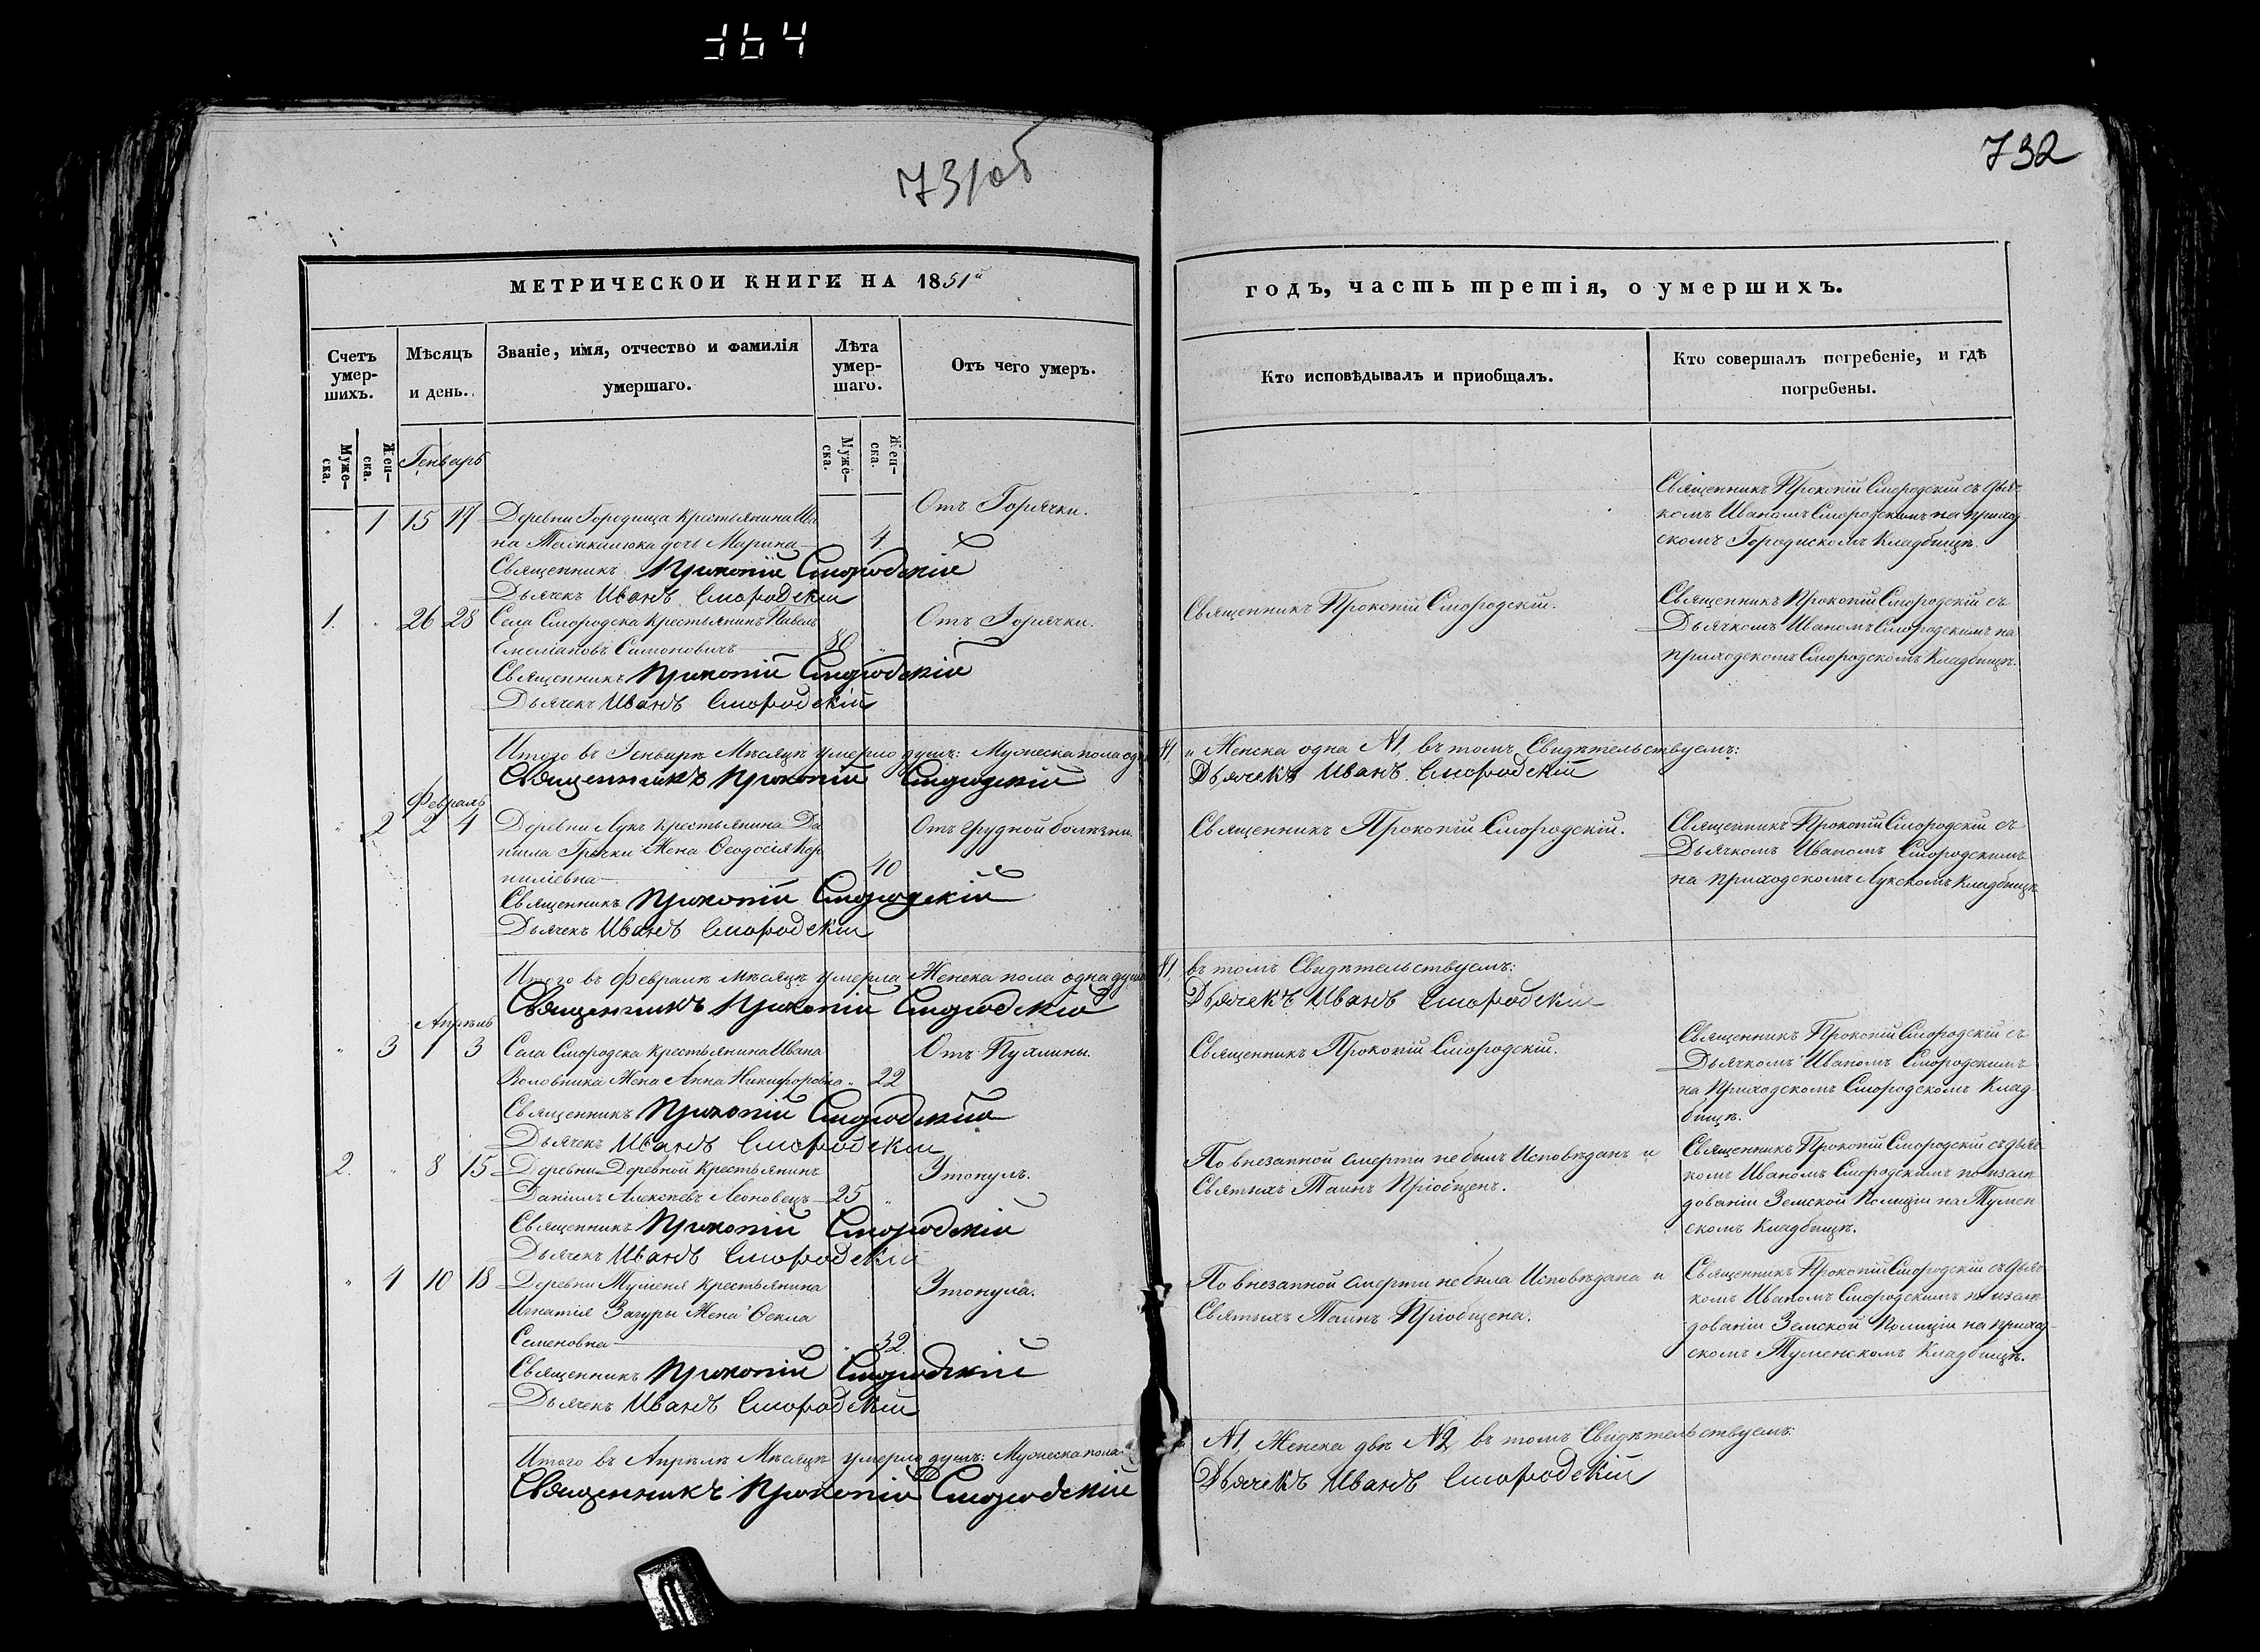 364
731об
732
МЕТРИЧЕСКОЙ КНИГИ НА 1851й
годъ, часть третія, о умершихъ.
Счетъ умер-шихъ.
Мѣсяцъ и день.
Званіе, имя, отчество и фамилія умершаго.
Лѣта умер-шаго.
Отъ чего умеръ.
Кто исповѣдывалъ и пріобщалъ.
Кто совершалъ погребеніе, и гдѣ погребены.
Муже-ска.
Жен-ска.
Генварь
Муже-ска.
Жен-ска.
" 1 15 17 Деревни Городища крестьянина Ива
на дочь Марина 4
Отъ Горячки.
Священникъ Прокопій Смородскій
Дьячекъ Иванъ Смородскій
Священникъ Прокопій Смородскій съ дьяч-
комъ Иваномъ Смородскимъ на приход-
скомъ Городискомъ Кладбищѣ.
1. " 26 28 Села Смородска крестьянинъ Павелъ
Емеліановъ Симоновичъ 80 "
Отъ Горячки.
Священникъ Прокопій Смородскій
Дьячекъ Иванъ Смородскій
Священникъ Прокопій Смородскій.
Священникъ Прокопій Смородскій съ
Дьячкомъ Иваномъ Смородскимъ на
приходскомъ Смородскомъ Кладбищѣ.
Итого въ Генварѣ Мѣсяцѣ умерло душъ: Мужеска пола одна №1, и Женска одна №1, въ томъ Свидѣтельствуемъ:
Священникъ Прокопій Смородскій
Дьячекъ Иванъ Смородскій
Февраль
" 2 2 4 Деревни Лукъ крестьянина Да
ніила Гречки Жена Ѳеодосія Кор
ниліевна 40
Отъ грудной болѣзни.
Священникъ Прокопій Смородскій
Дьячекъ Иванъ Смородскій
Священникъ Прокопій Смородскій.
Священникъ Прокопій Смородскій съ
Дьячкомъ Иваномъ Смородскимъ
на приходскомъ Лукскомъ Кладбищѣ
Итого въ Февралѣ мѣсяцѣ умерла Женска пола одна душа №1, въ томъ Свидѣтельствуемъ:
Священникъ Прокопій Смородскій
Дьячекъ Иванъ Смородскій
Апрѣль
" 3 1 3 Села Смородска крестьянина Ивана
Воловника Жена Анна Никифоровна " 22
Отъ Пухлины.
Священникъ Прокопій Смородскій
Дьячекъ Иванъ Смородскій
Священникъ Прокопій Смородскій.
Священникъ Прокопій Смородскій съ
Дьячкомъ Иваномъ Смородскимъ
на Приходскомъ Смородскомъ Клад-
бищѣ.
2. " 8 15 Деревни Деревной Крестьянинъ
Даніилъ Алексѣевъ Леоновецъ 25 "
Утонулъ.
Священникъ Прокопій Смородскій
Дьячекъ Иванъ Смородскій
По внезапной смерти не былъ Исповѣданъ и
Святыхъ Таинъ Пріобщенъ.
Священникъ Прокопій Смородскій съ дьяч
комъ Иваномъ Смородскимъ по изслѣ
дованіи Земской Полиціи на Тумен
скомъ Кладбищѣ.
" 4 10 18 Деревни Туменя Крестьянина
Игнатія Загуры Жена Ѳекла
Семеновна " 32
Утонула.
Священникъ Прокопій Смородскій
Дьячекъ Иванъ Смородскій
По внезапной смерти не была Исповѣдана и
Святыхъ Таинъ Пріобщена.
Священникъ Прокопій Смородскій съ дьяч
комъ Иваномъ Смородскимъ по изслѣ
дованіи Земской Полиціи на приход-
скомъ Туменскомъ Кладбищѣ.
Итого въ Апрѣлѣ Мѣсяцѣ умерло душъ: Мужеска пола №1, Женска двѣ №2, въ томъ Свидѣтельствуемъ:
Священникъ Прокопій Смородскій
Дьячекъ Иванъ Смородскій